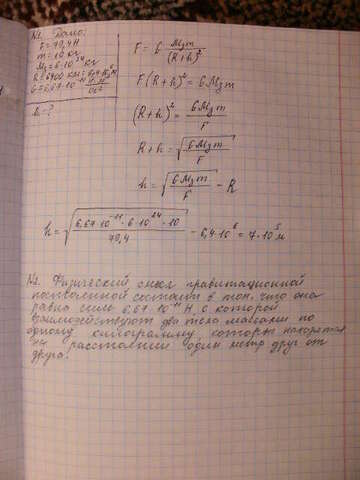 №1. Дано:
F=79,4H
m=10 кг
Mз=6·10²⁴ кг
R=6400 км=6,4·10⁶м
G=6,67·10⁻¹¹ Н·м²/кг²
h-?
F = G Mзm/(R+h)²
F(R+h)² = GMзm
(R+h)² = GMзm/F
R+h = √(GMзm/F)
h = √(GMзm/F) - R
h = √(6,67·10⁻¹¹·6·10²⁴·10/79,4) - 6,4·10⁶ = 7·10⁵м
№2. Физический смысл гравитационной
постоянной состоит в том, что она
равна силе 6,67·10⁻¹¹ Н, с которой
взаимодействуют два тела массами по
одному килограмму, которые находятся
на расстоянии один метр друг от
друга.